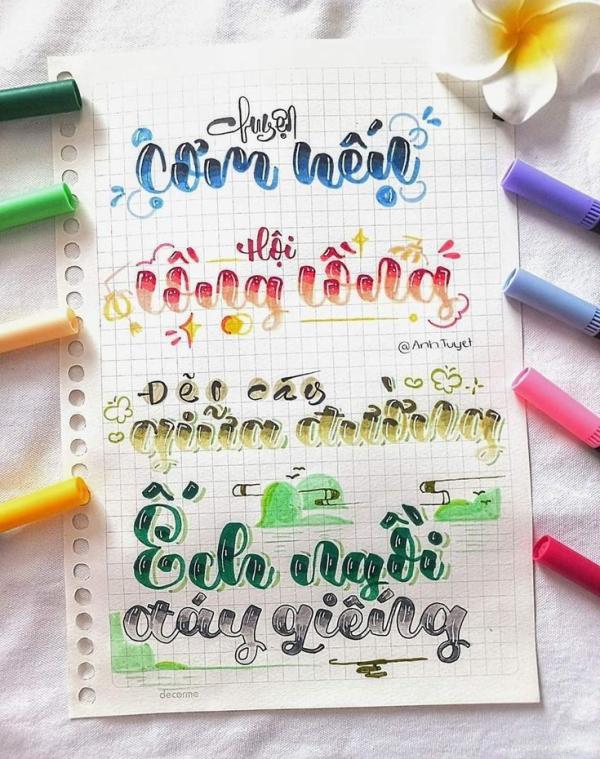 chuyện
cơm nếp
Hội
lồng tồng
@AnhTuyet
Đẽo cày
giữa đường
Ếch ngồi
đáy giếng
decorme